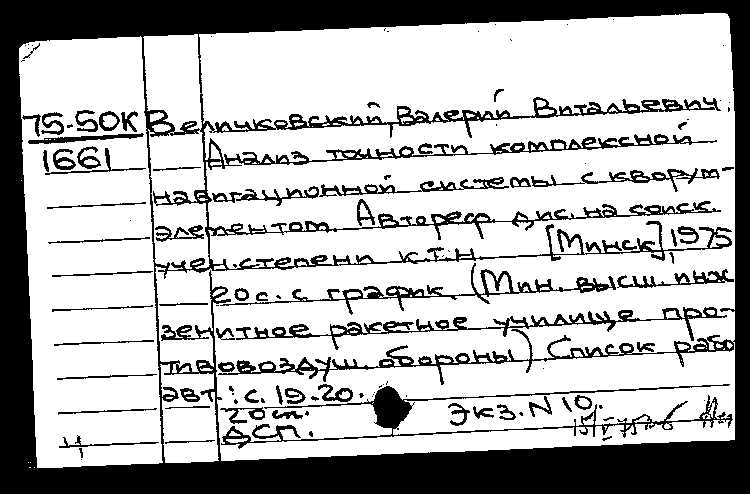 75-50К Величковский, Валерий Витальевич.
1661 Анализ точности комплексной
навигационной системы с кворум-
элементом. Автореф. дис. на соиск.
учен. степени к.т.н. [Минск], 1975
20с. с график. (Мин. высш. инж
зенитное ракетное училище про-
тивовоздуш. обороны) Список рабо
авт.: с. 19-20.
20см. Экз. N 10.
ДСП.
Ч